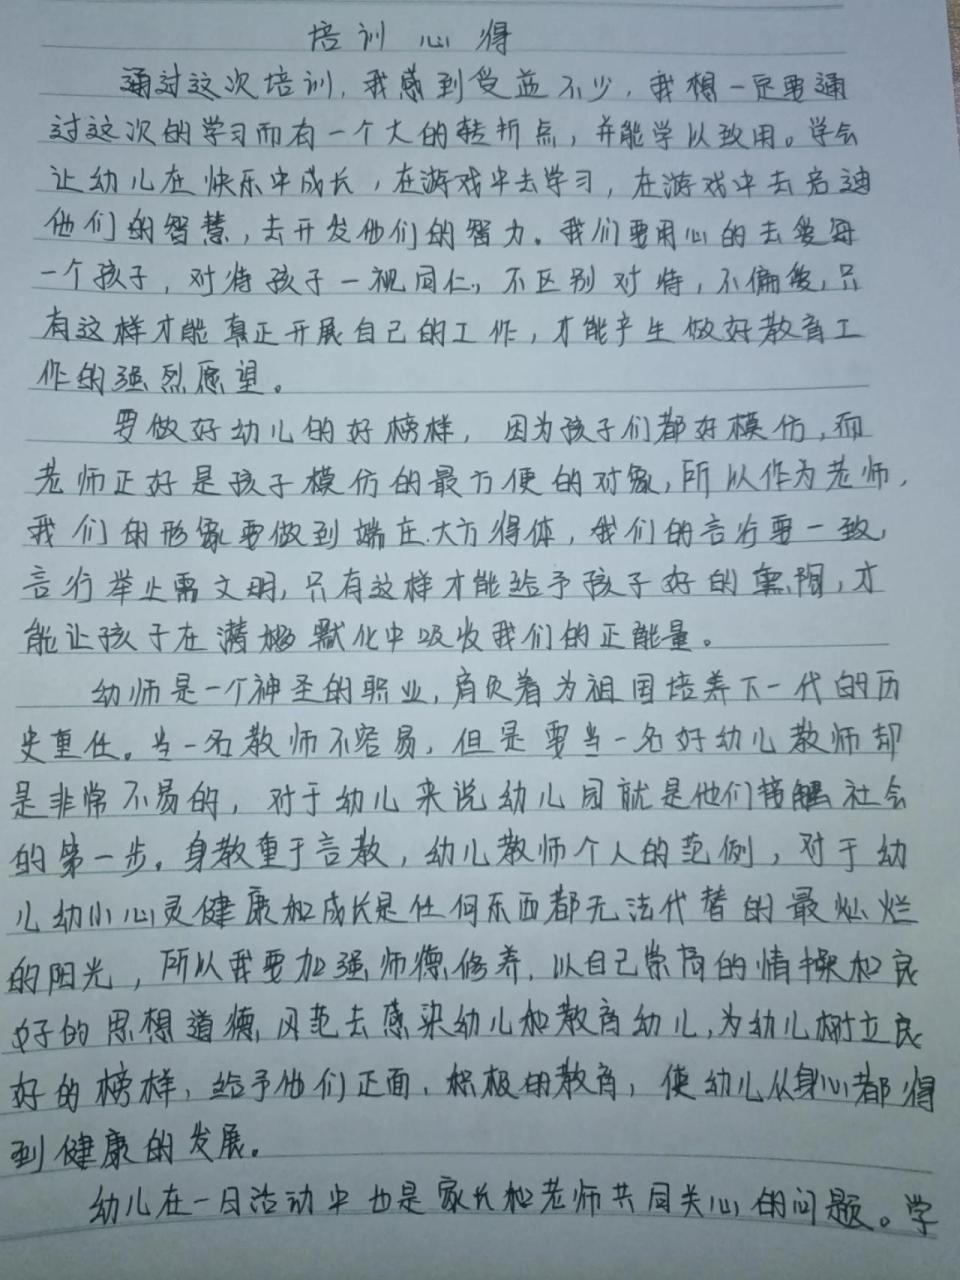 培训心得
通过这次培训,我感到受益不少,我想一定要通
过这次的学习而有一个大的转折点,并能学以致用。学会
让幼儿在快乐中成长,在游戏中去学习,在游戏中去启迪
他们的智慧,去开发他们的智力。我们要用心的去爱每
一个孩子,对待孩子一视同仁,不区别对待,不偏爱,只
有这样才能真正开展自己的工作,才能产生做好教育工
作的强烈愿望。
要做好幼儿的好榜样,因为孩子们都好模仿,而
老师正好是孩子模仿的最方便的对象,所以作为老师,
我们的形象要做到端庄.大方得体,我们的言行要一致,
言行举止需文明,只有这样才能给予孩子好的熏陶,才
能让孩子在潜移默化中吸收我们的正能量。
幼师是一个神圣的职业,肩负着为祖国培养下一代的历
史重任。当一名教师不容易,但是要当一名好幼儿教师却
是非常不易的,对于幼儿来说幼儿园就是他们接触社会
的第一步。身教重于言教,幼儿教师个人的范例,对于幼
儿幼小心灵健康和成长是任何东西都无法代替的最灿烂
的阳光,所以我要加强师德修养,以自己崇高的情操和良
好的思想道德风范去感染幼儿和教育幼儿,为幼儿树立良
好的榜样,给予他们正面、积极的教育,使幼儿从身心都得
到健康的发展。
幼儿在一日活动中也是家长和老师共同关心的问题。学